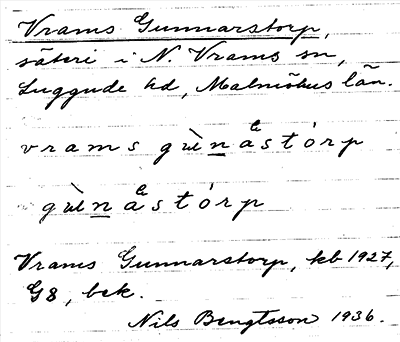 Vrams Gunnarstorp,
säteri i N. Vrams sn,
Luggude hd, Malmöhus län.
vrams gɯ̀nåstórp
gɯ̀nåstórp
Vrams Gunnarstorp, kb 1927,
G8, bek.
Nils Bengtsson 1936.